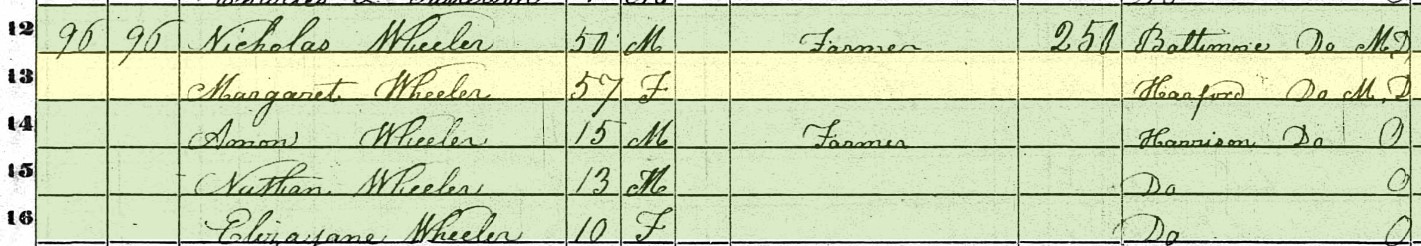 12 96 96 Nicholas Wheeler 50 M Farmer 250 Baltimore Do M.D
13 Margaret Wheeler 57 F Harford Do M.D
14 Amon Wheeler 15 M Farmer Harrison Do O
15 Nathan Wheeler 13 M Do O
16 Elizajane Wheeler 10 F Do O